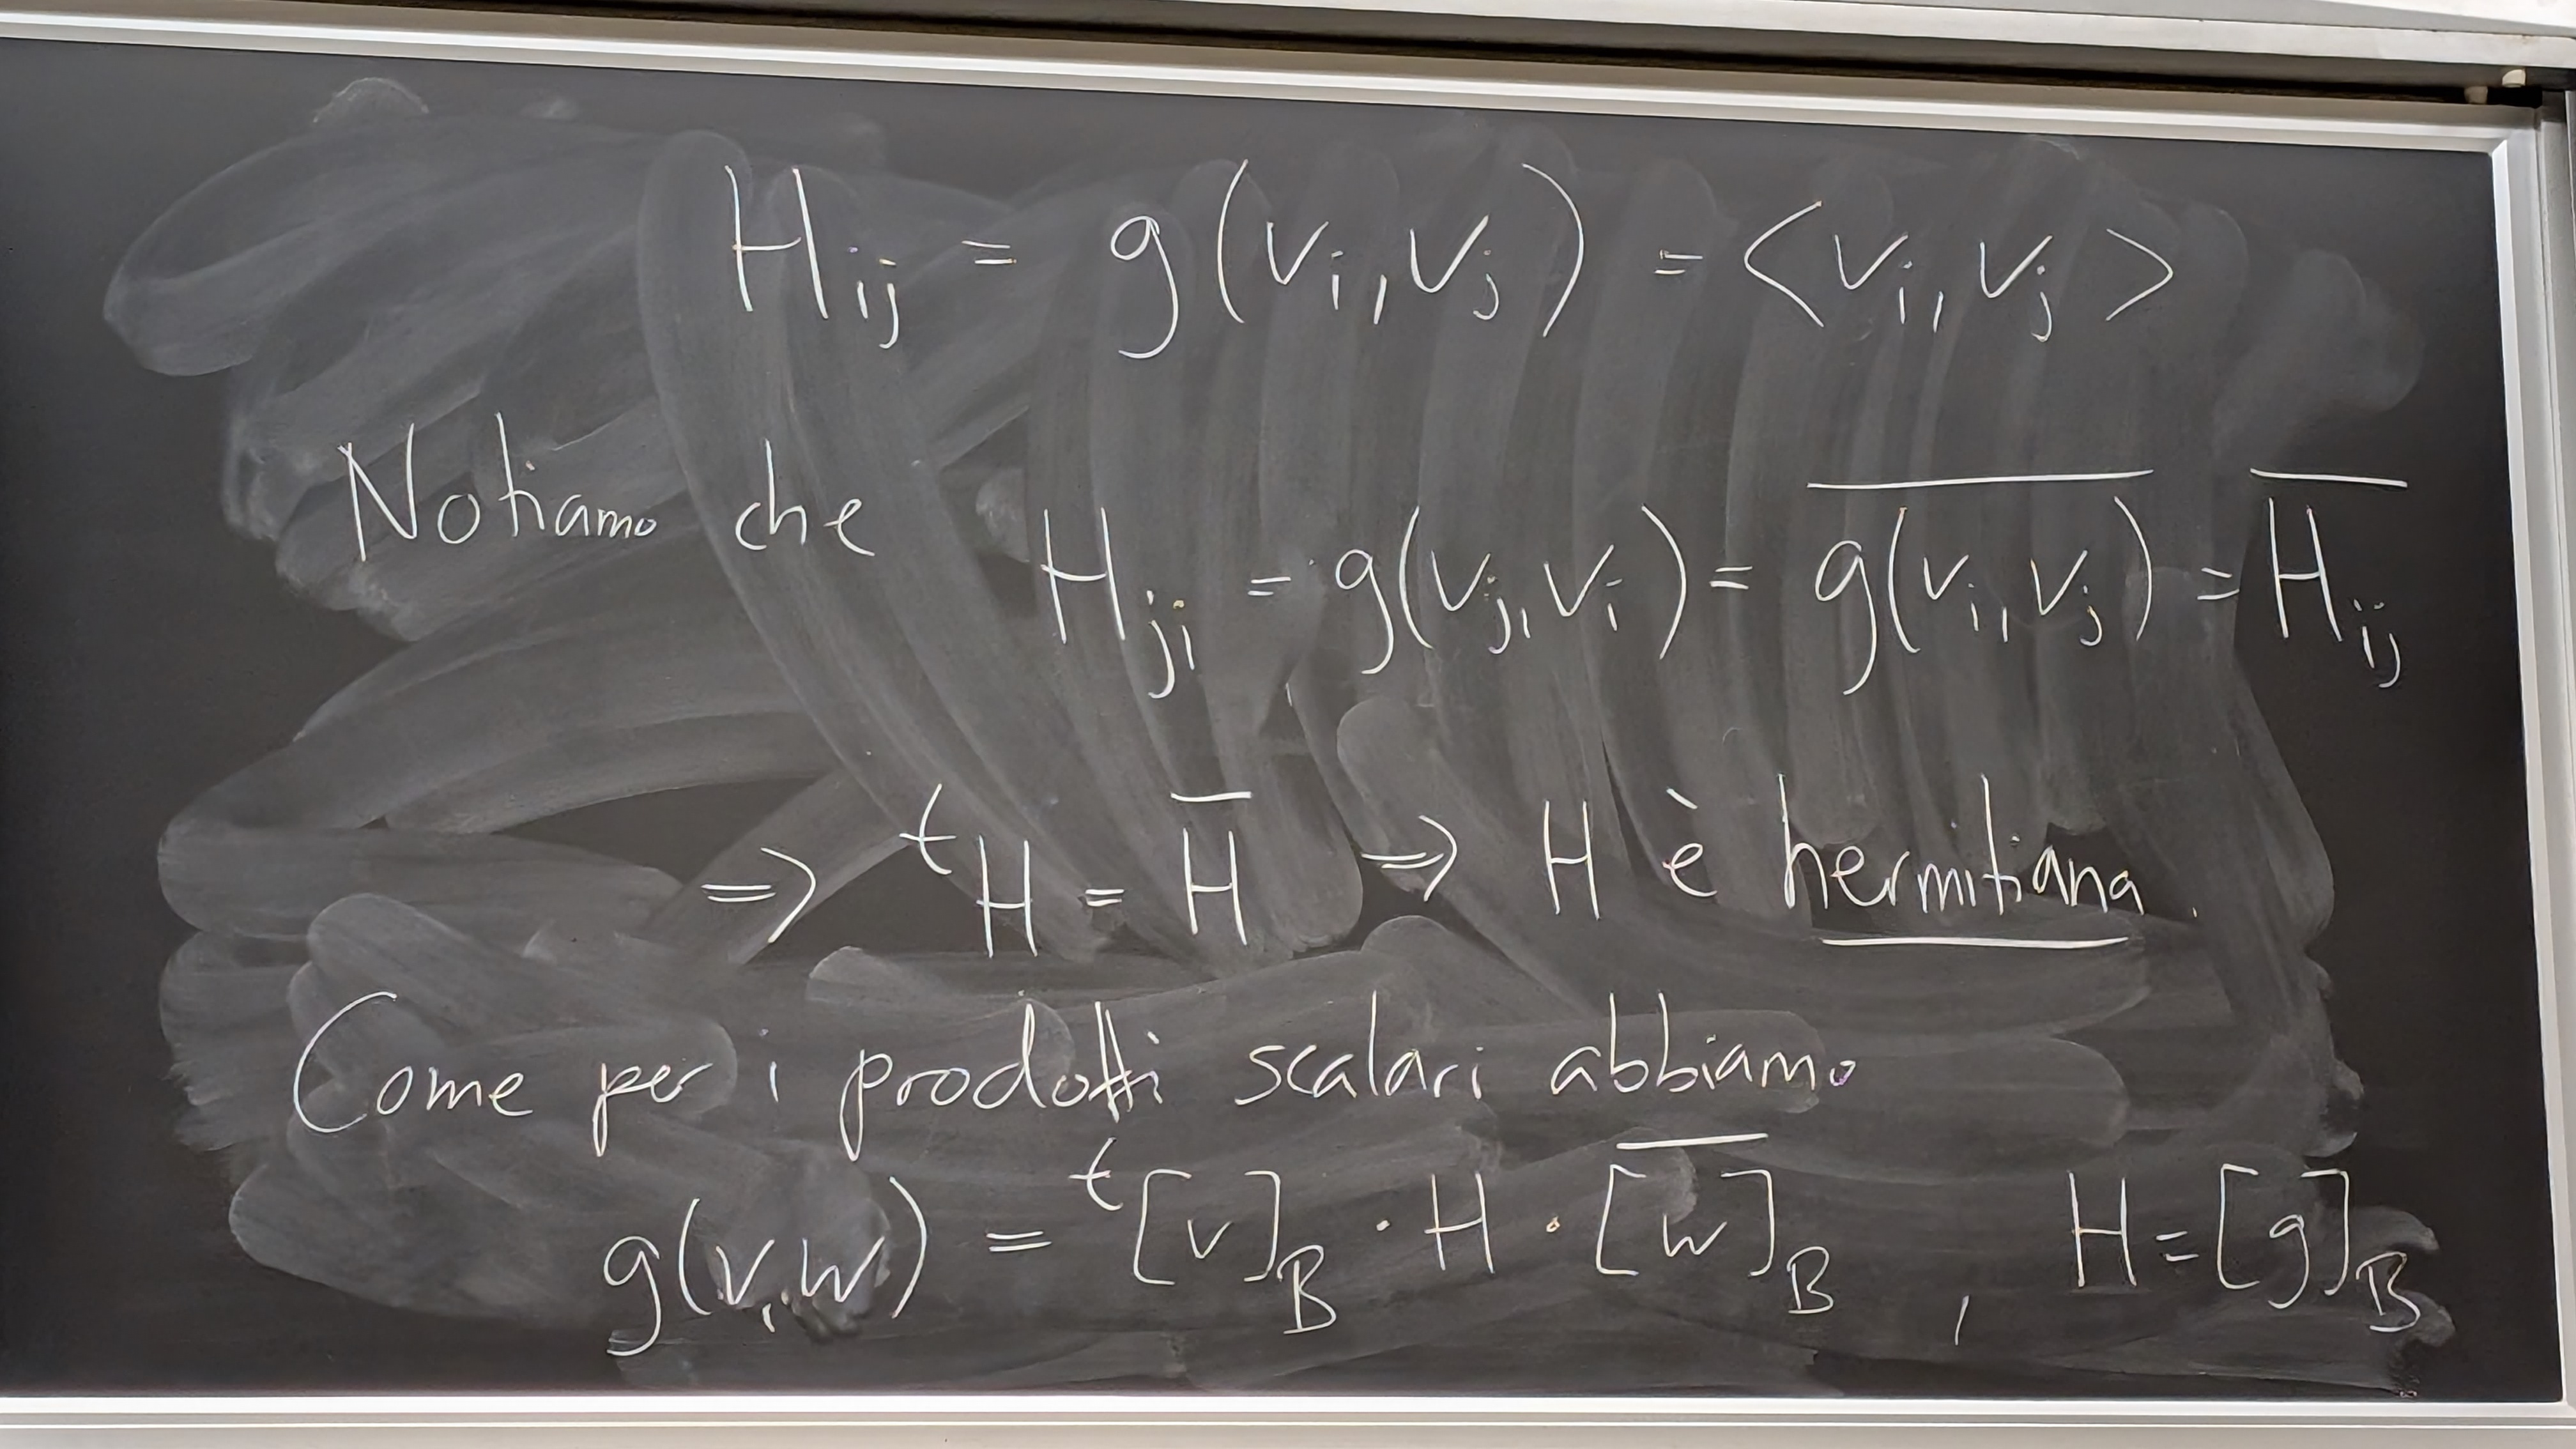 H_{ij} = g(v_i, v_j) = <v_i, v_j>
Notiamo che
H_{ji} = g(v_j, v_i) = \overline{g(v_i, v_j)} = \overline{H}_{ij}
⇒ ^tH = \overline{H} ⇒ H è hermitiana.
Come per i prodotti scalari abbiamo
g(v, w) = ^t[v]_B · H · \overline{[w]}_B , H = [g]_B